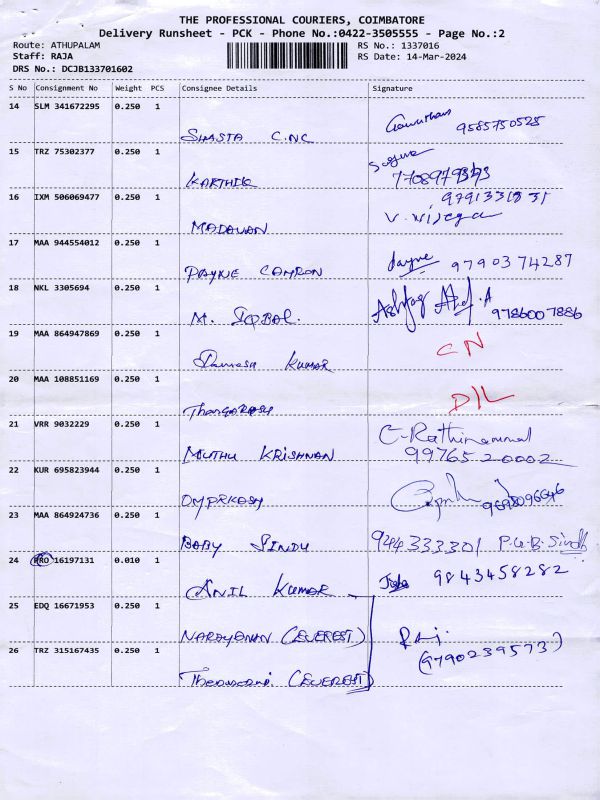 THE PROFESSIONAL COURIERS, COIMBATORE
Delivery Runsheet - PCK - Phone No.:0422-3505555 - Page No.:2
Route: ATHUPALAM RS No.: 1337016
Staff: RAJA RS Date: 14-Mar-2024
DRS No.: DCJB133701602
S No Consignment No Weight PCS Consignee Details Signature
14 SLM 341672295 0.250 1
SHASTA C.NC 9585750525
15 TRZ 75302377 0.250 1
KARTHIK
16 IXM 506069477 0.250 1
MADAVAN
17 MAA 944554012 0.250 1
PAYNE CAMRON 9790374287
18 NKL 3305694 0.250 1
M. IQBAL. 9786007886
19 MAA 864947869 0.250 1 CN
KUMAR
20 MAA 108851169 0.250 1 D/L
21 VRR 9032229 0.250 1 C-Rathinammal
MUTHU KRISHNAN 99765 20002
22 KUR 695823944 0.250 1
OMPRKASH
23 MAA 864924736 0.250 1
BABY SINDU 9244333301 P.G.B. Sindh
24 PRO 16197131 0.010 1 9843458282
ANIL KUMAR
25 EDQ 16671953 0.250 1
NARAYANAN (EVEREST) Raj.
26 TRZ 315167435 0.250 1 (9790239573)
(EVEREST)